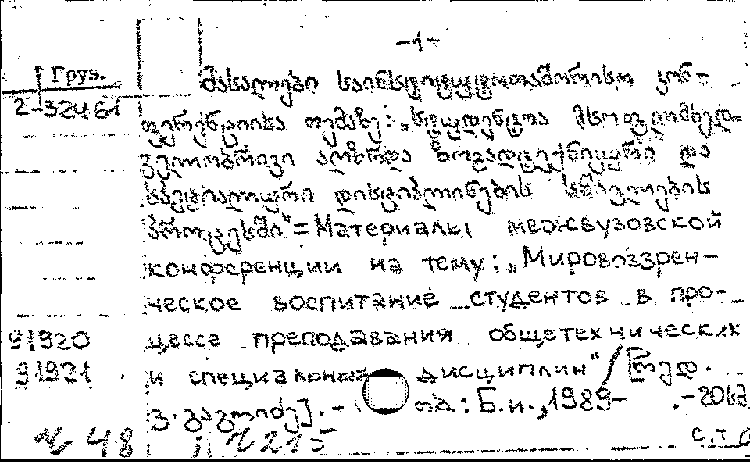 -1-
Груз. მასალები საინსტიტუტთაშორისო კონ-
2-32461 ფერენციისა თემაზე: „სტუდენტთა მსოფლმხედ-
ველობრივი აღზრდა ზოგადტექნიკური და
სპეციალური დისციპლინების სწავლების
პროცესში“ = Материалы межвузовской
конференции на тему: „Мировоззрен-
ческое воспитание студентов в про-
91920 цессе преподавания общетехнических
91921 и специальных дисциплин“ / [რედ.
ვ. გაგლიძე]. - თბ.: Б.и., 1989- .-20სმ
№ 48 ; № 215 с.т.о